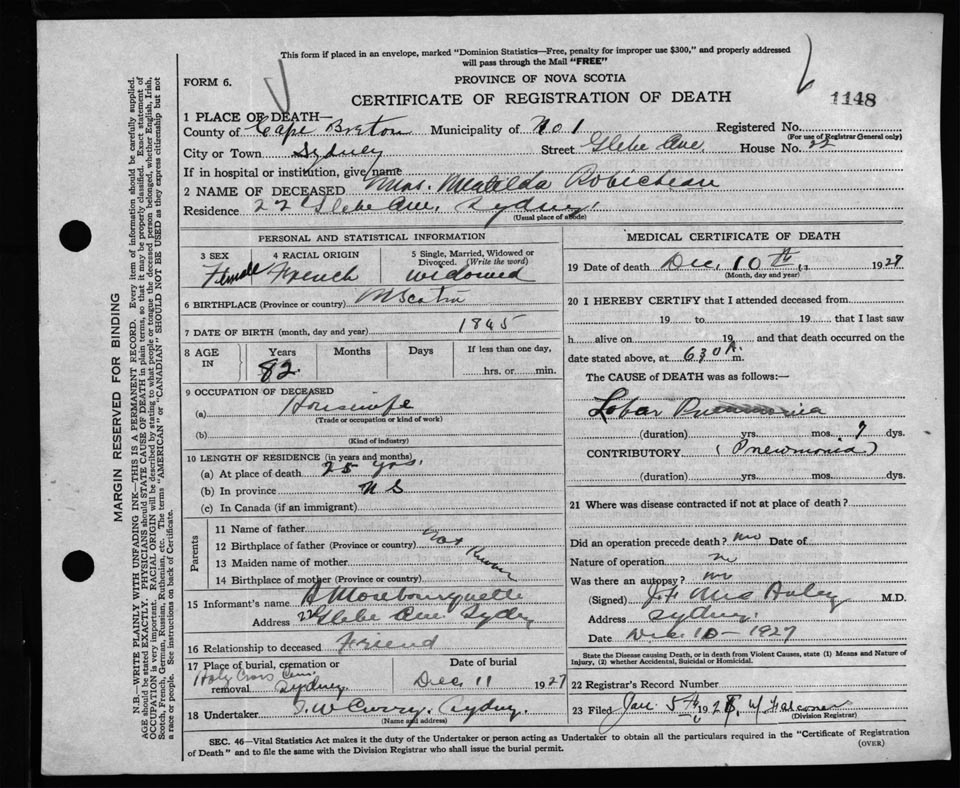 This form if placed in an envelope, marked "Dominion Statistics—Free, penalty for improper use $300," and properly addressed
will pass through the Mail "FREE"
FORM 6.
PROVINCE OF NOVA SCOTIA
CERTIFICATE OF REGISTRATION OF DEATH
1148
1 PLACE OF DEATH—
County of Cape Breton Municipality of No 1 Registered No.
(For use of Registrar General only)
City or Town Sydney Street Glebe Ave House No. 22
If in hospital or institution, give name
2 NAME OF DECEASED Mrs. Matilda Robicheau
Residence 22 Glebe Ave. Sydney
(Usual place of abode)
PERSONAL AND STATISTICAL INFORMATION
3 SEX 4 RACIAL ORIGIN 5 Single, Married, Widowed or
Divorced. (Write the word)
Female French Widowed
6 BIRTHPLACE (Province or country) N Scotia
7 DATE OF BIRTH (month, day and year) 1845
8 AGE IN Years Months Days If less than one day,
82 hrs. or min.
9 OCCUPATION OF DECEASED
(a) Housewife
(Trade or occupation or kind of work)
(b)
(Kind of industry)
10 LENGTH OF RESIDENCE (in years and months)
(a) At place of death 25 yrs.
(b) In province N S
(c) In Canada (if an immigrant)
Parents
11 Name of father
12 Birthplace of father (Province or country) Not Known
13 Maiden name of mother
14 Birthplace of mother (Province or country)
15 Informant's name
Address 22 Glebe Ave Sydney
16 Relationship to deceased Friend
17 Place of burial, cremation or removal Date of burial
Holy Cross Cem. Sydney. Dec 11 1927
18 Undertaker Curry. Sydney.
(Name and address)
MEDICAL CERTIFICATE OF DEATH
19 Date of death Dec. 10th 1927
(Month, day and year)
20 I HEREBY CERTIFY that I attended deceased from
19 to 19 that I last saw
h alive on 19 and that death occurred on the
date stated above, at 630 m.
The CAUSE of DEATH was as follows:—
Lobar Pneumonia
(duration) yrs. mos. 7 dys.
CONTRIBUTORY (Pneumonia)
(duration) yrs. mos. dys.
21 Where was disease contracted if not at place of death?
Did an operation precede death? no Date of
Nature of operation no
Was there an autopsy? no
(Signed) M.D.
Address Sydney
Date Dec. 10 - 1927
State the Disease causing Death, or in death from Violent Causes, state (1) Means and Nature of
Injury, (2) whether Accidental, Suicidal or Homicidal.
22 Registrar's Record Number
23 Filed Jan. 5th 1928
(Division Registrar)
SEC. 46—Vital Statistics Act makes it duty of the Undertaker or person acting as Undertaker to obtain all the particulars required in the "Certificate of Registration
of Death" and to file the same with the Division Registrar who shall issue the burial permit.
(OVER)
MARGIN RESERVED FOR BINDING
N.B.—WRITE PLAINLY WITH UNFADING INK—THIS IS A PERMANENT RECORD. Every item of information should be carefully supplied.
AGE should be stated EXACTLY. PHYSICIANS should STATE CAUSE OF DEATH in plain terms, so that it may be properly classified. Exact statement of
OCCUPATION is very important. RACIAL ORIGIN will be described by stating to what people or tongue the deceased person belonged, whether English, Irish,
Scotch, French, German, Russian, Ruthenian, etc. The terms "AMERICAN" or "CANADIAN" SHOULD NOT BE USED as they express citizenship but not
a race or people. See instructions on back of Certificate.